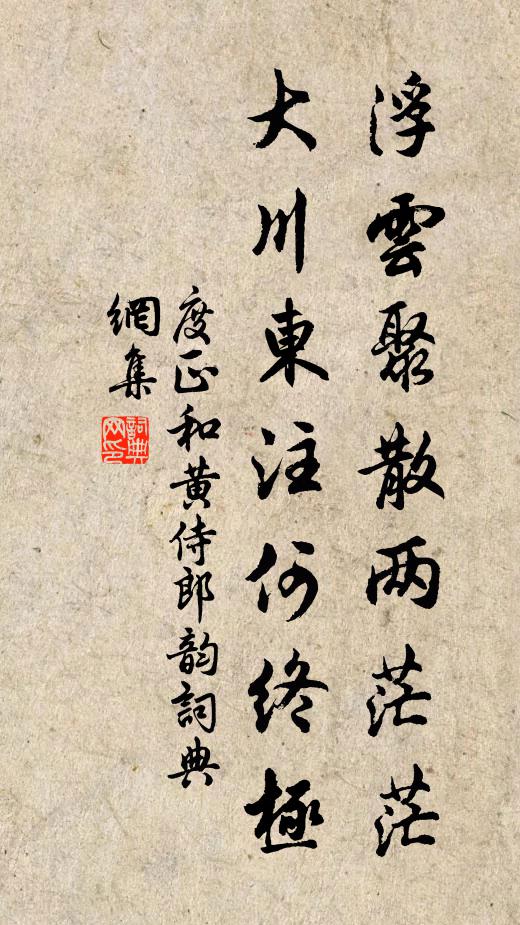 浮雲聚散两茫茫
大川東注何終極
度正和黄侍郎韵詞典
網集
詞典
网印